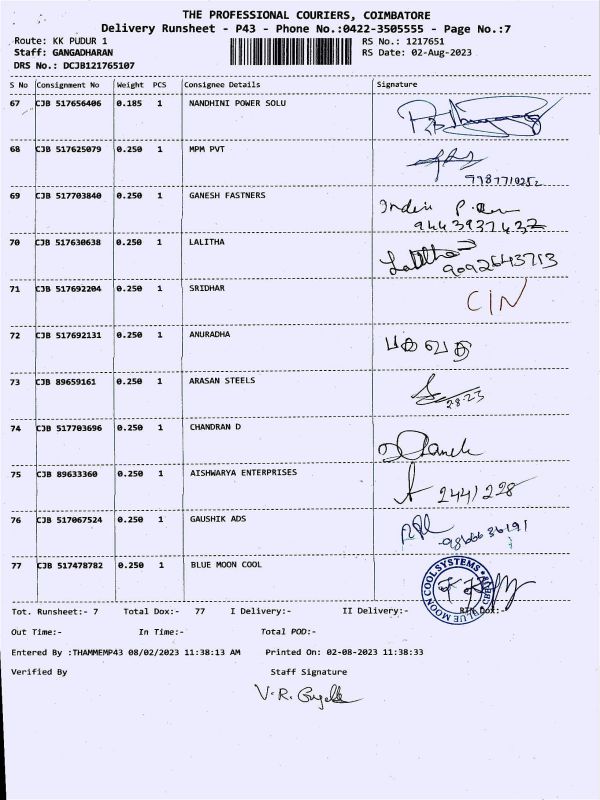 THE PROFESSIONAL COURIERS, COIMBATORE
Delivery Runsheet - P43 - Phone No.:0422-3505555 - Page No.:7
Route: KK PUDUR 1 RS No.: 1217651
Staff: GANGADHARAN RS Date: 02-Aug-2023
DRS No.: DCJB121765107
S No Consignment No Weight PCS Consignee Details Signature
67 CJB 517656406 0.185 1 NANDHINI POWER SOLU
68 CJB 517625079 0.250 1 MPM PVT
69 CJB 517703840 0.250 1 GANESH FASTNERS
9443937432
70 CJB 517630638 0.250 1 LALITHA Lalitha
9092643753
71 CJB 517692204 0.250 1 SRIDHAR CIN
72 CJB 517692131 0.250 1 ANURADHA
73 CJB 89659161 0.250 1 ARASAN STEELS
2.8.23
74 CJB 517703696 0.250 1 CHANDRAN D
75 CJB 89633360 0.250 1 AISHWARYA ENTERPRISES
2441228
76 CJB 517067524 0.250 1 GAUSHIK ADS
77 CJB 517478782 0.250 1 BLUE MOON COOL
BLUE MOON COOL SYSTEMS
Tot. Runsheet:- 7 Total Dox:- 77 I Delivery:- II Delivery:- Dox:-
Out Time:- In Time:- Total POD:-
Entered By :THAMMEMP43 08/02/2023 11:38:13 AM Printed On: 02-08-2023 11:38:33
Verified By Staff Signature
V.R.